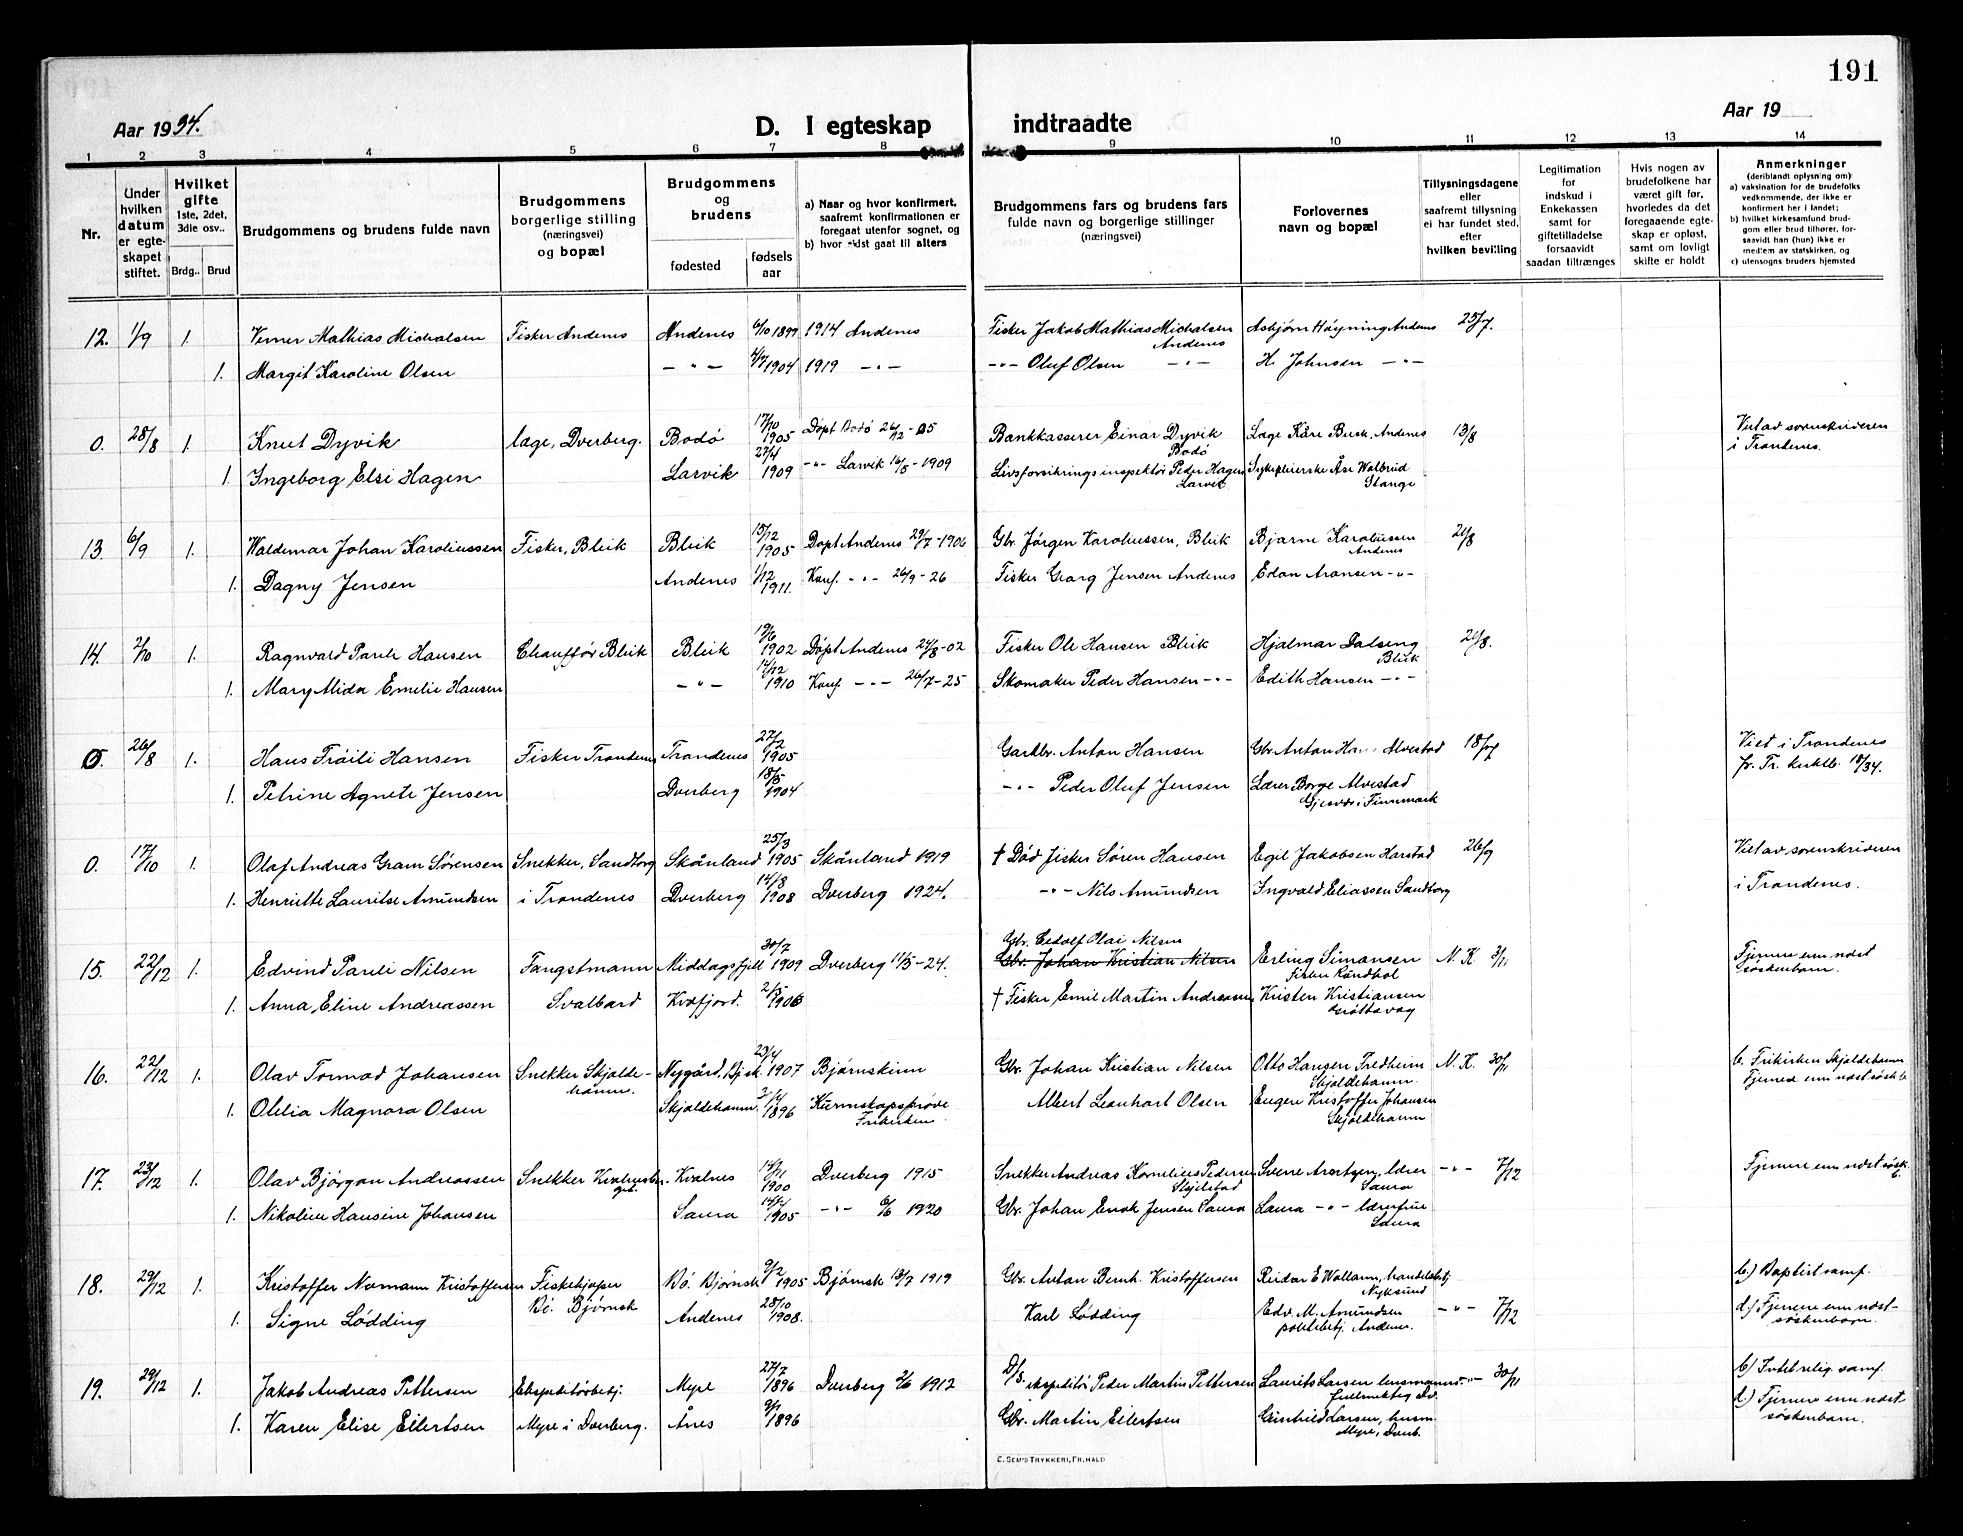 191
Aar 1934.
D. I egteskap indtraadte
Aar 19
1 2 3 4 5 6 7 8 9 10 11 12 13 14
Nr.
Under hvilken datum er egteskapet stiftet.
Hvilket gifte 1ste, 2det, 3die osv..
Brdg.. Brud
Brudgommens og brudens fulde navn
Brudgommens borgerlige stilling (næringsvei) og bopæl
Brudgommens og brudens
fødested
fødselsaar
a) Naar og hvor konfirmert, saafremt konfirmationen er foregaat utenfor sognet, og
b) hvor sidst gaat til alters
Brudgommens fars og brudens fars fulde navn og borgerlige stillinger (næringsvei)
Forlovernes navn og bopæl
Tillysningsdagene eller saafremt tillysning ei har fundet sted, efter hvilken bevilling
Legitimation for indskud i Enkekassen samt for giftetilladelse forsaavidt saadan tiltrænges
Hvis nogen av brudefolkene har været gift før, hvorledes da det foregaaende egteskap er opløst, samt om lovligt skifte er holdt
Anmerkninger
(deriblandt oplysning om)
a) vaksination for de brudefolks vedkommende, der ikke er konfirmert her i landet;
b) hvilket kirkesamfund brudgom eller brud tilhører, forsaavidt han (hun) ikke er medlem av statskirken, og
c) utensogns bruders hjemsted
12. 1/9 1. Verner Mathias Michalsen Fisker Andenes Andenes 6/10 1899 1914 Andenes Fisker Jakob Mathias Michalsen Andenes Asbjørn Høyning Andenes 25/7.
1. Margit Karoline Olsen — " — 4/7 1904 1919 — " — — " — Oluf Olsen — " — H. Johnsen — " —
0. 28/8 1. Knut Dyvik læge, Dverberg. Bodø 17/10 1905 Døpt Bodø 26/12-05 Bankkasserer Einar Dyvik Bodø Læge Kåre Busk, Andenes 13/8 Viet av sorenskriveren
1. Ingeborg Elsi Hagen Larvik 27/4 1909 — " — Larvik 16/5-1909 Livsforsikringsinspektør Peder Hagen Larvik Sykepleierske Åse Walbrud Stange i Trondenes.
13. 6/9 1. Waldemar Johan Karoliussen Fisker, Bleik Bleik 15/12 1905 Døpt Andenes 29/7-1906 Gbr. Jørgen Karoliussen, Bleik Bjarne Karoliussen Andenes 21/8
1. Dagny Jensen Andenes 1/12 1911. Konf. — " — 26/9-26 Fisker Georg Jensen Andenes Edon Aronsen — " —
14. 2/10 1. Ragnvald Pauli Hansen Chauffør Bleik Bleik 19/6 1902 Døpt Andenes 24/8-02 Fisker Ole Hansen Bleik Hjalmar Dalseng Bleik 21/8.
1. Mary Alida Emelie Hansen — " — 14/12 1910 Konf — " — 26/7-25 Skomaker Peder Hansen — " — Edith Hansen — " —
0. 26/8 1. Hans Fröili Hansen Fisker Trondenes Trondenes 27/2 1905 Gardbr. Anton Hansen Gbr. Anton Hans Alvestad 18/7 Viet i Trondenes
1. Petrine Agnete Jensen Dverberg 18/5 1904 — " — Peder Oluf Jensen Lærer Borge Alvestad Gjesvær i Finnmark fr. Tr. kirkeb. 18/34.
0. 17/10 1. Olaf Andreas Gram Sørensen Snekker, Sandtorg Skånland 25/3 1905 Skånland 1919 † Død fisker Søren Hansen Egil Jakobsen Harstad 26/9 Viet av sorenskriveren
1. Henriette Lauritse Amundsen i Trondenes Dverberg 14/8 1908 Dverberg 1924. — " — Nils Amundsen Ingvald Eliassen Sandtorg i Trondenes.
15. 22/12 1. Edvind Pauli Nilsen Fangstmann Middagsfjell 30/7 1909 Dverberg 11/5-24. Gbr. Johan Kristian Nilsen Erling Simonsen N. K. 3/11 Fjernere enn næst søskenbarn.
1. Anna Eline Andreassen Svalbard Kvæfjord. 2/5 1906 † Fisker Emil Martin Andreassen Kristen Kristiansen
16. 22/12 1. Olav Tormod Johansen Snekker Skjoldehamn. Nygård, Bj.sk. 23/4 1907 Bjørnskinn Gbr. Johan Kristian Nilsen Otto Hansen Fredheim Skjoldehamn. N. K. 30/11 b. Frikirken Skjoldehamn
1. Otelia Magnora Olsen Skjoldehamn. 1896 Kunnskapsprøve Frikirken Albert Leonhart Olsen Eugen Kristoffer Johansen Skjoldehamn Fjernere enn næst søsk.b.
17. 23/12 1. Olav Bjørgan Andreassen Snekker Kvalnes 14/11 1900 Dverberg 1915 Snekker Andreas Kornelius Pedersen lærer Saura — " — 7/12 Fjernere enn næst søsk.b.
1. Nikoline Hansine Johansen Saura 14/2 1905 — " — 6/6 1920 Gbr. Johan Enok Jensen Saura Laura — " — lærerfrue Saura
18. 29/12 1. Kristoffer Normann Kristoffersen Fiskekjøper Bø. Bjørnsk Bø. Bjørnsk 9/2 1905 Bjørnsk 13/7 1919 Gbr. Anton Bernh. Kristoffersen Reidar E Wollann, handelsbetj Nyksund b.) Baptistsamf.
1. Signe Lødding Andenes 28/10 1908. Karl Lødding Edv. M. Amundsen politibetj. Andenes. — " — 7/12 d.) Fjernere enn næst-søskenbarn.
19. 29/12 1. Jakob Andreas Pettersen Ekspeditørbetj. Myre 27/7 1896 Dverberg 2/6 1912 D/S. ekspeditør Peder Martin Pettersen Laurits Larsen lensmanns- fullmektig Dv. — " — 30/11 b) Intet relig. samf.
1. Karen Elise Eilertsen Myre i Dverberg. Ånes 9/1 1896 Gbr. Martin Eilertsen Gunhild Larsen, husm. Myre, Dverb. d.) Fjernere enn næst søskenbarn.
E. SEM'S TRYKKERI, FR.HALD